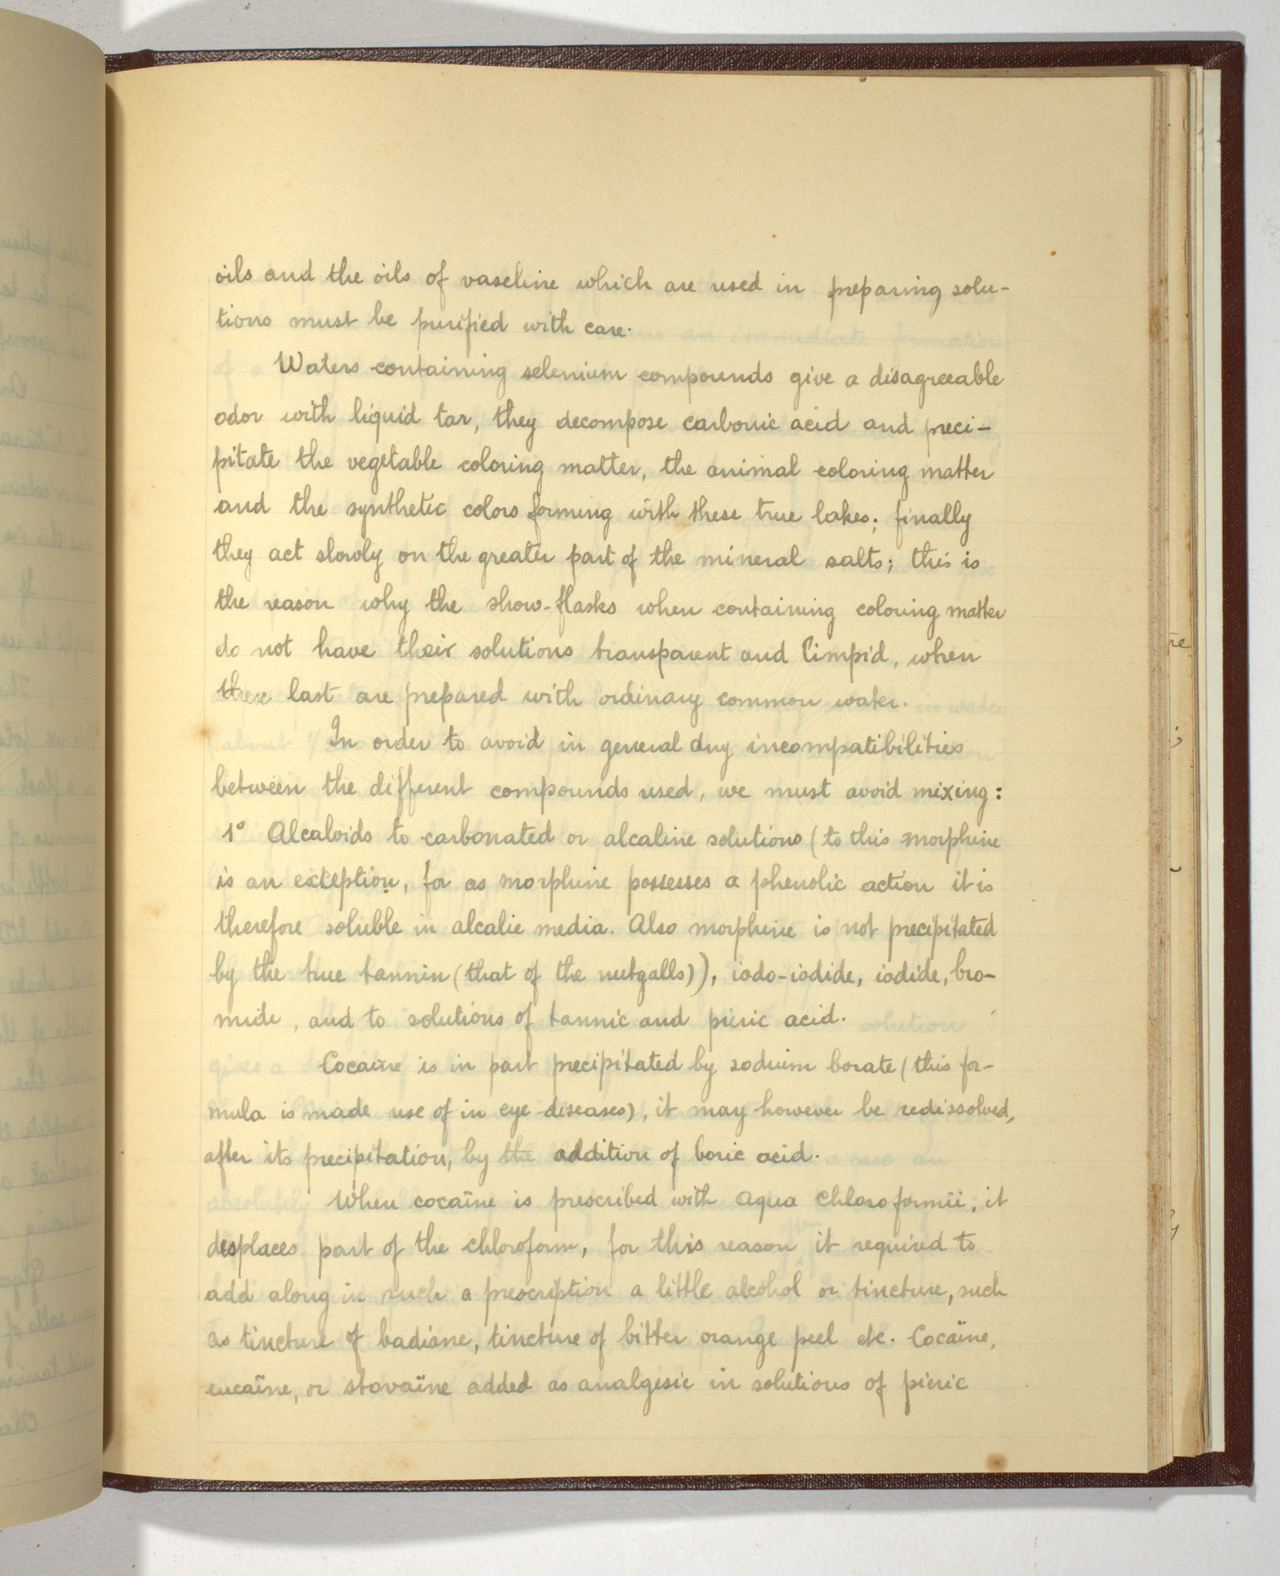 oils and the oils of vaseline which are used in preparing solu-
tions must be purified with care.
Waters containing selenium compounds give a disagreeable
odor with liquid tar, they decompose carbonic acid and preci-
pitate the vegetable coloring matter, the animal coloring matter
and the synthetic colors forming with these true lakes; finally
they act slowly on the greater part of the mineral salts; this is
the reason why the show-flasks when containing coloring matter
do not have their solutions transparent and limpid, when
these last are prepared with ordinary common water.
In order to avoid in general any incompatibilities
between the different compounds used, we must avoid mixing:
1° Alcaloids to carbonated or alcaline solutions (to this morphine
is an exception, for as morphine possesses a phenolic action it is
therefore soluble in alcalie media. Also morphine is not precipitated
by the true tannin (that of the nutgalls)), iodo-iodide, iodide, bro-
mide, and to solutions of tannic and picric acid.
Cocaine is in part precipitated by sodium borate (this for-
mula is made use of in eye diseases), it may however be redissolved,
after its precipitation, by the addition of boric acid.
When cocaïne is prescribed with aqua chloroformii, it
desplaces part of the chloroform, for this reason often it required to
add along in such a prescription a little alcohol or tincture, such
as tincture of badiane, tincture of bitter orange peel etc. Cocaïne,
eucaïne, or stovaïne added as analgesic in solutions of picric